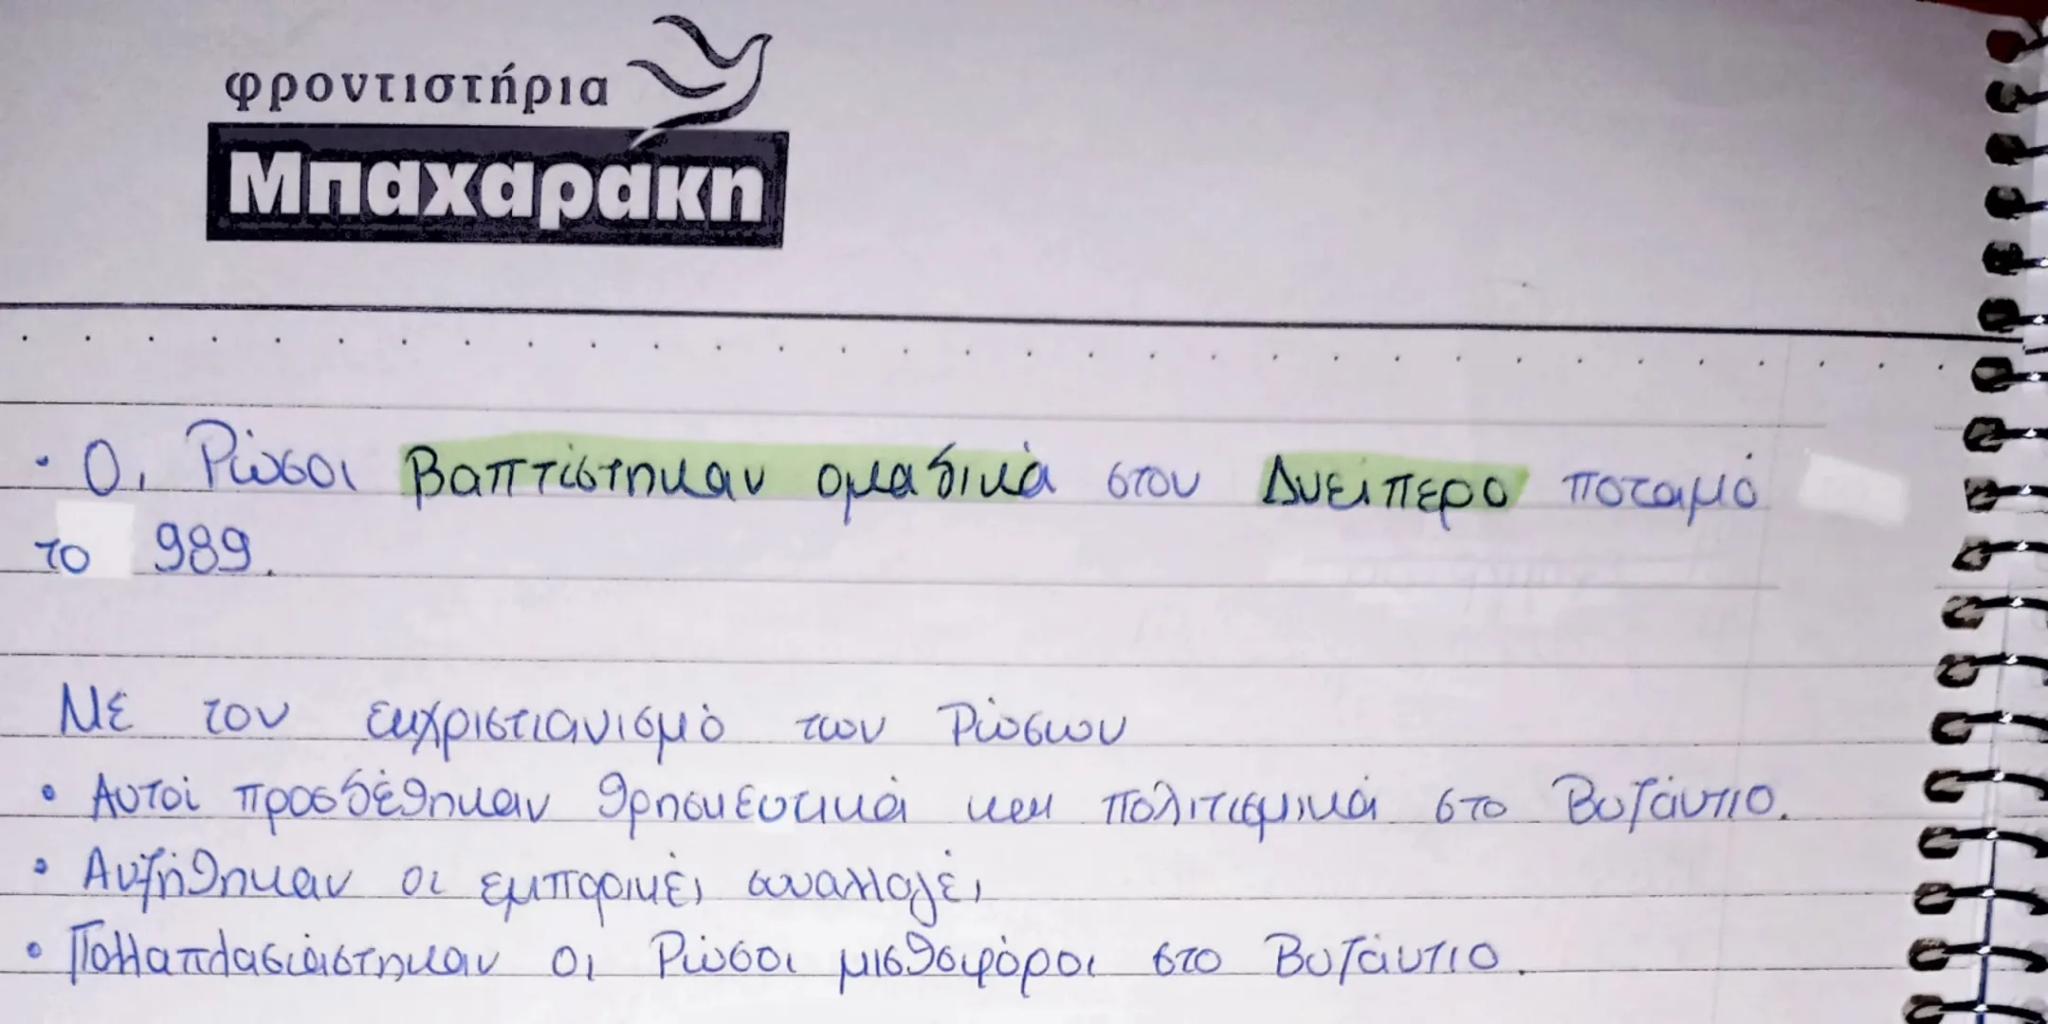 φροντιστήρια
Μπαχαράκη
· Οι Ρώσοι βαπτίστηκαν ομαδικά στον Δνείπερο ποταμό
το 989.
Με τον εκχριστιανισμό των Ρώσων
• Αυτοί προσδέθηκαν θρησκευτικά και πολιτισμικά στο Βυζάντιο.
• Αυξήθηκαν οι εμπορικές συναλλαγές
• Πολλαπλασιάστηκαν οι Ρώσοι μισθοφόροι στο Βυζάντιο.